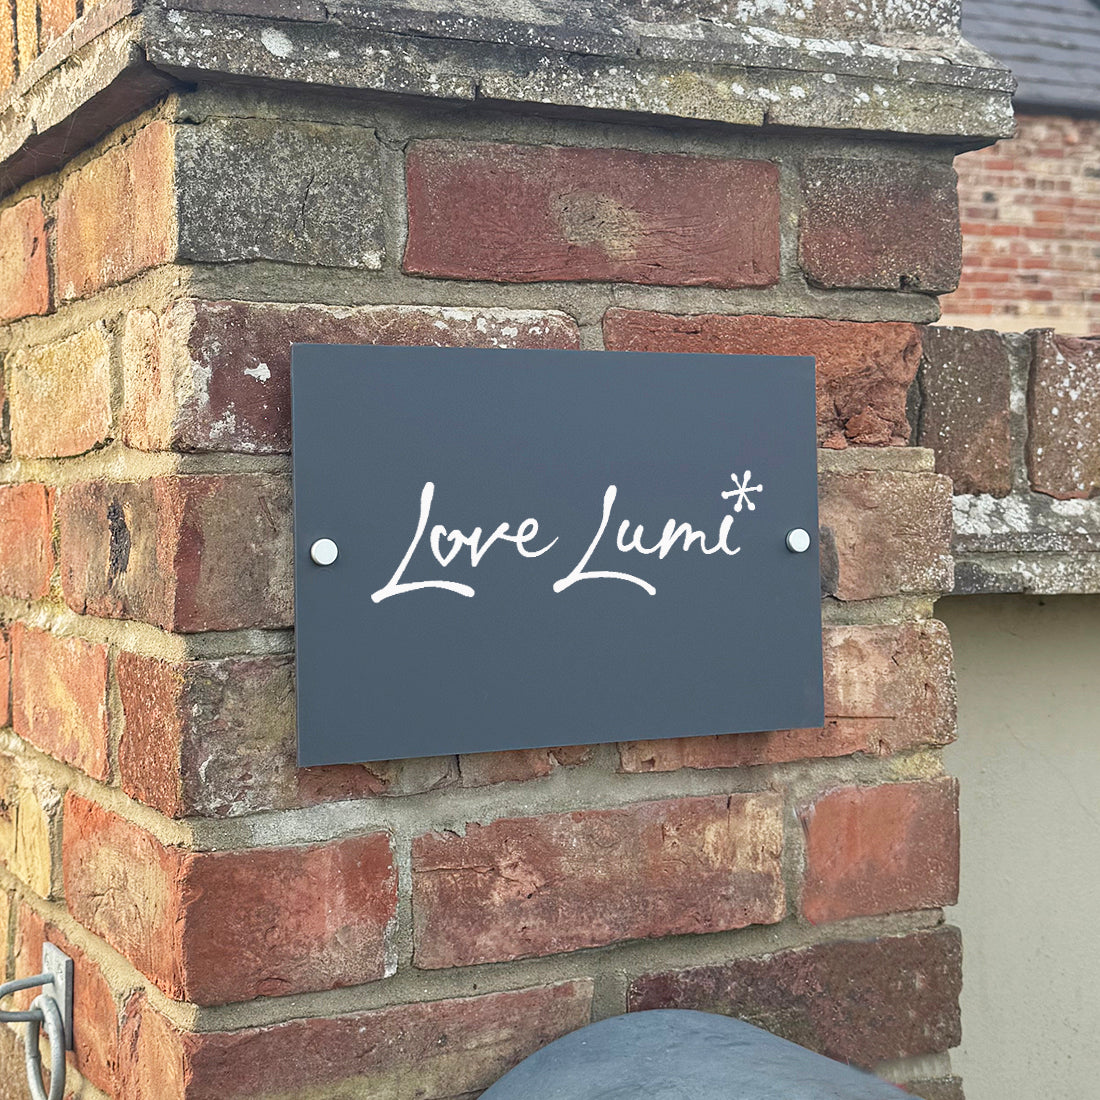 Love Lumi*